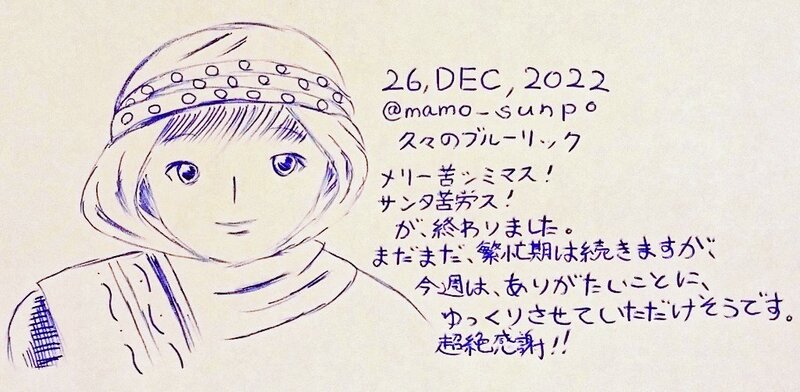 26, DEC, 2022
@mamo_sunpo
久々のブルーリック
メリー苦シミマス!
サンタ苦労ス!
が、終わりました。
まだまだ、繁忙期は続きますが、
今週は、ありがたいことに、
ゆっくりさせていただけそうです。
超絶感謝!!